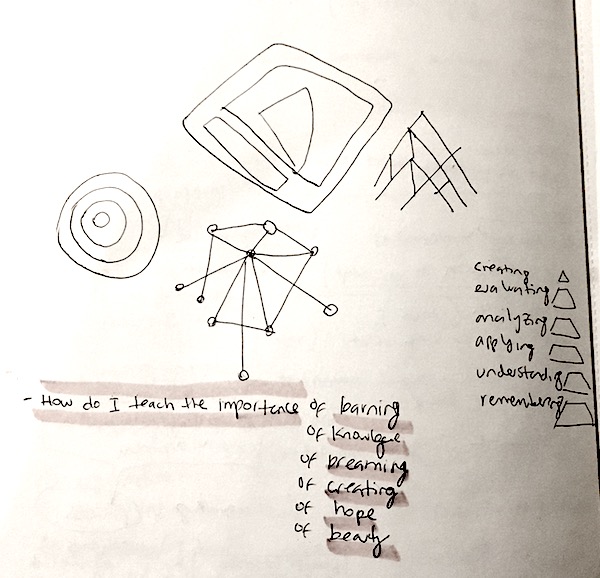 creating
evaluating
analyzing
applying
understanding
remembering
- How do I teach the importance of learning
of knowledge
of dreaming
of creating
of hope
of beauty